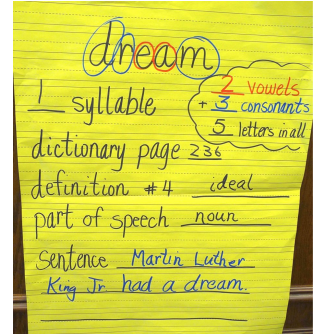 dream
2 vowels
1 syllable
+ 3 consonants
5 letters in all
dictionary page 236
definition #4 ideal
part of speech noun
Sentence Martin Luther
King Jr had a dream.